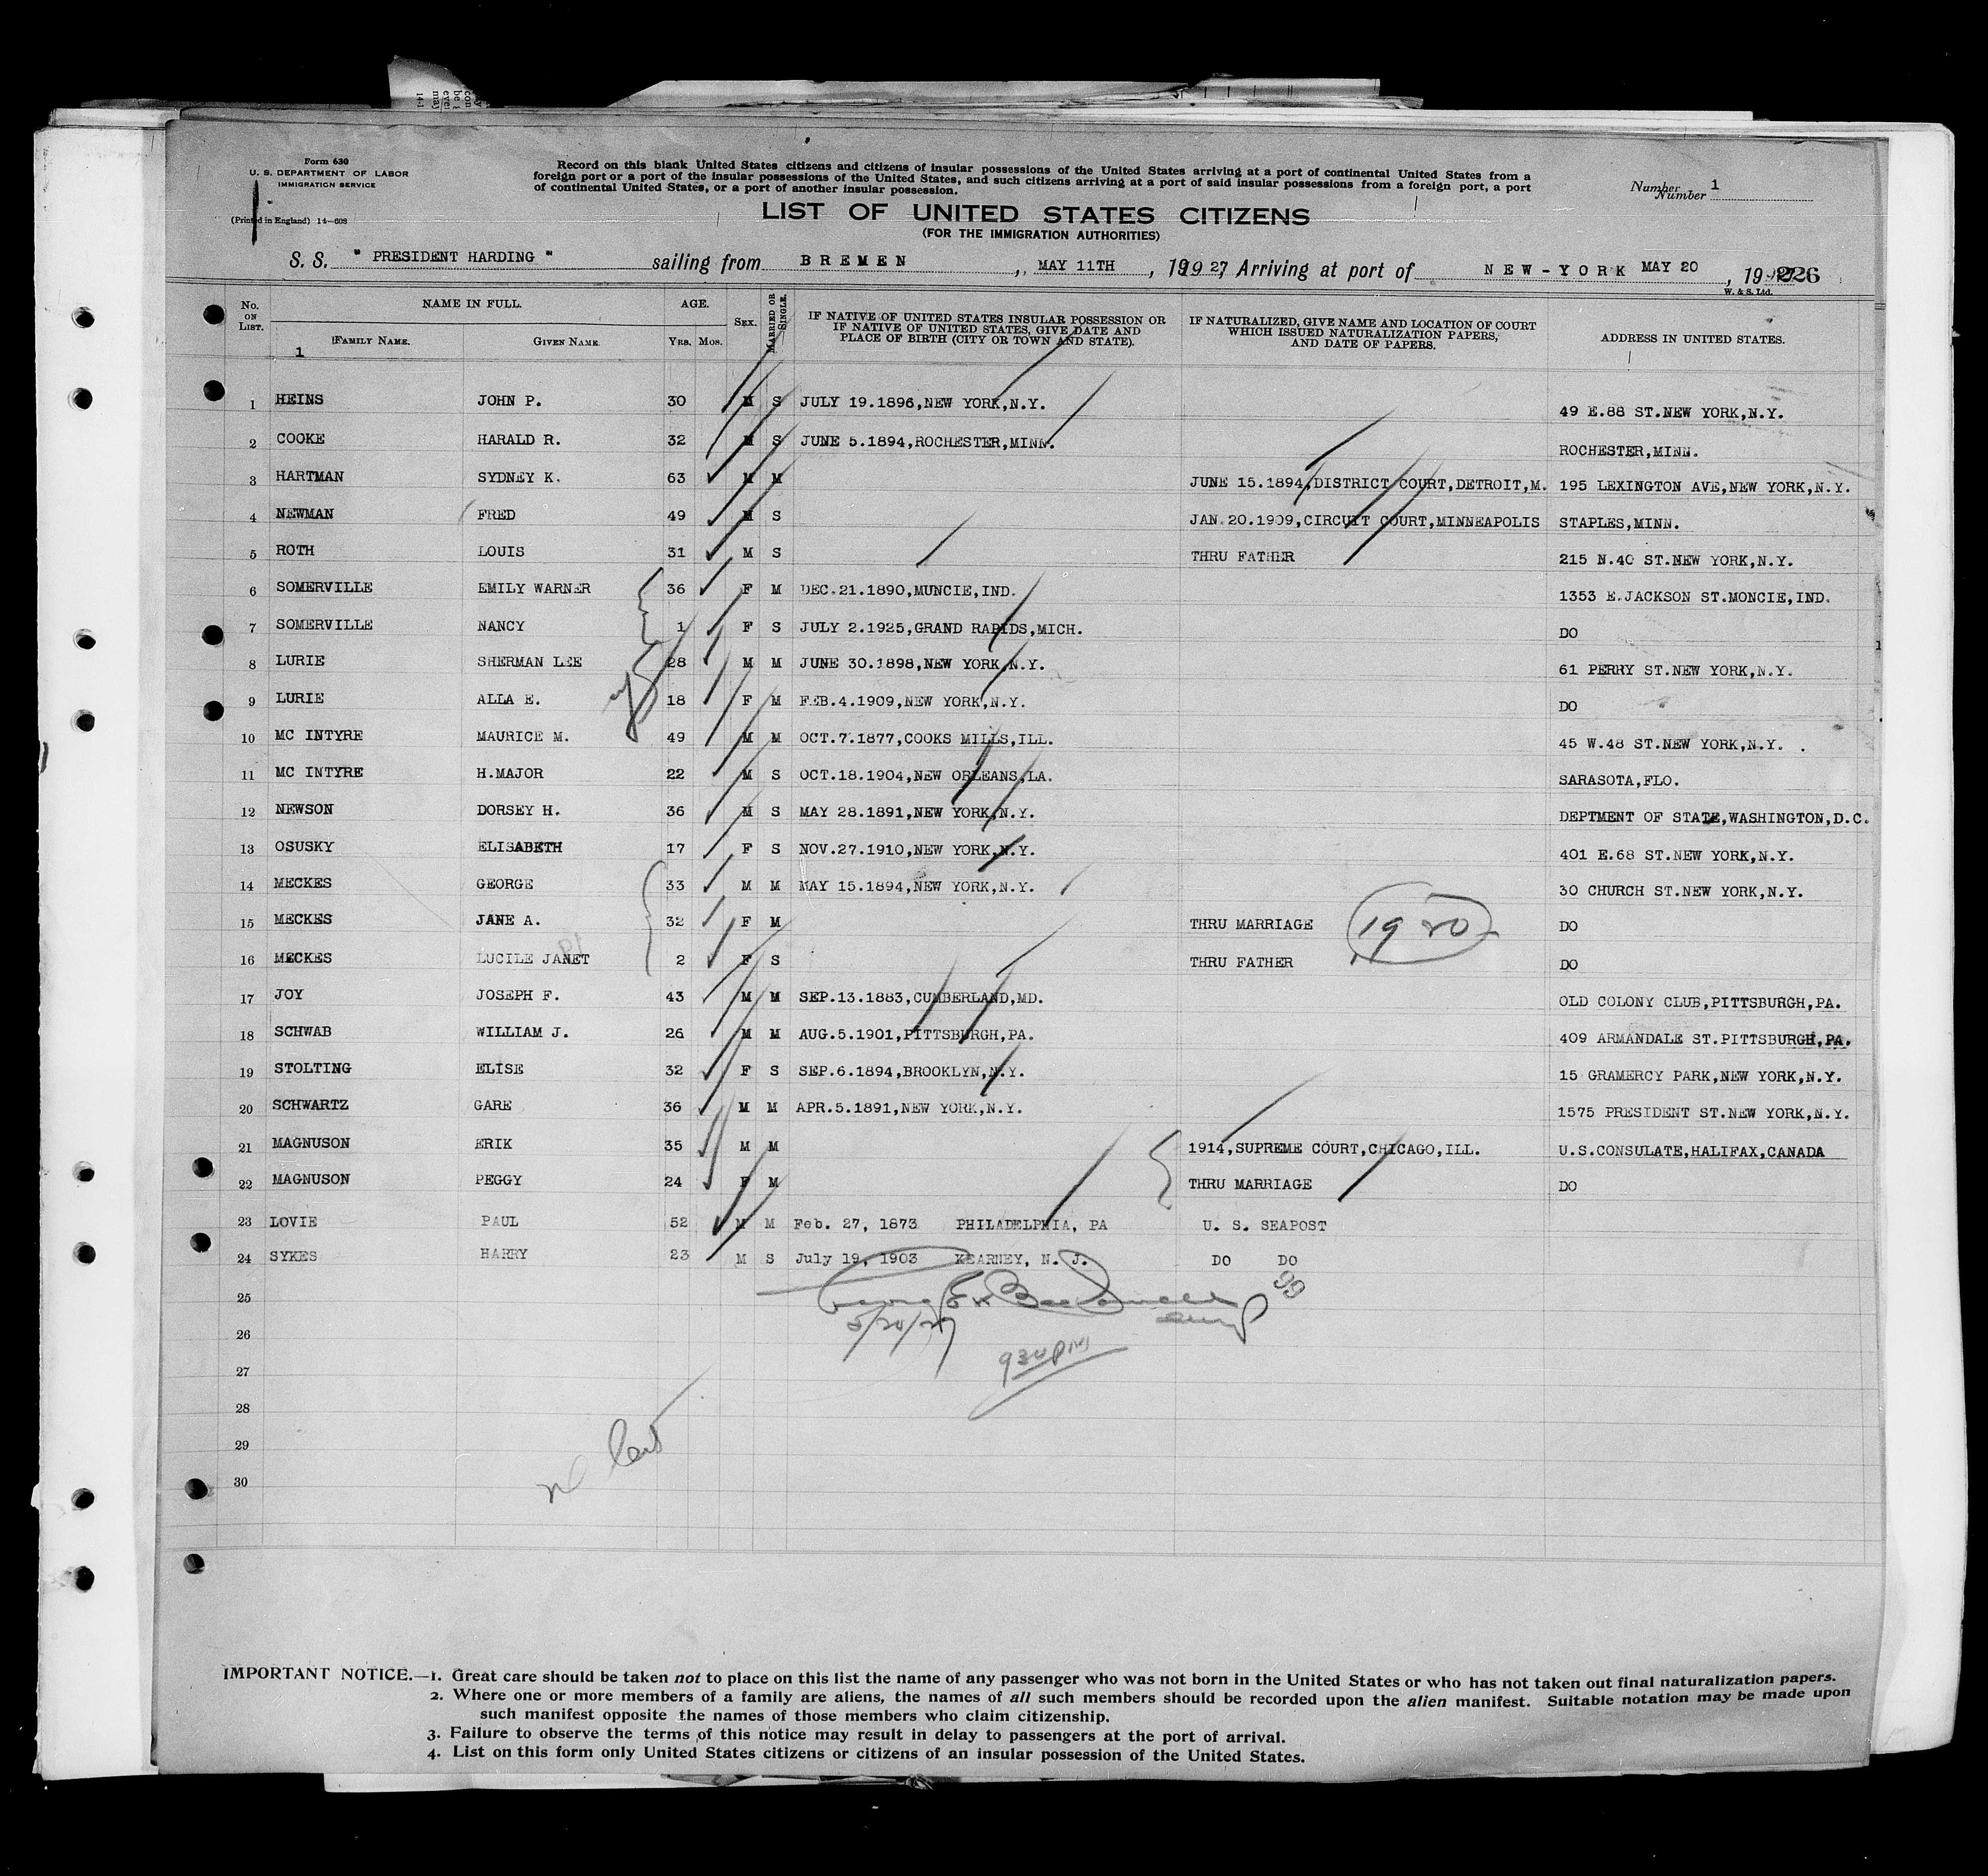 Form 630
U. S. DEPARTMENT OF LABOR
IMMIGRATION SERVICE
(Printed in England) 14—608
Record on this blank United States citizens and citizens of insular possessions of the United States arriving at a port of continental United States from a
foreign port or a port of the insular possessions of the United States, and such citizens arriving at a port of said insular possessions from a foreign port, a port
of continental United States, or a port of another insular possession.
Number 1
Number
LIST OF UNITED STATES CITIZENS
(FOR THE IMMIGRATION AUTHORITIES)
S. S. " PRESIDENT HARDING " sailing from BREMEN, MAY 11TH, 1927 Arriving at port of NEW-YORK MAY 20, 19 226
W. & S. Ltd.
No. ON LIST. NAME IN FULL. AGE. SEX. MARRIED OR SINGLE. IF NATIVE OF UNITED STATES INSULAR POSSESSION OR IF NATIVE OF UNITED STATES, GIVE DATE AND PLACE OF BIRTH (CITY OR TOWN AND STATE). IF NATURALIZED, GIVE NAME AND LOCATION OF COURT WHICH ISSUED NATURALIZATION PAPERS, AND DATE OF PAPERS. ADDRESS IN UNITED STATES.
FAMILY NAME. GIVEN NAME. YRS. MOS.
1
1 HEINS JOHN P. 30 M S JULY 19.1896,NEW YORK,N.Y. 49 E.88 ST.NEW YORK,N.Y.
2 COOKE HARALD R. 32 M S JUNE 5.1894,ROCHESTER,MINN. ROCHESTER,MINN.
3 HARTMAN SYDNEY K. 63 M M JUNE 15.1894,DISTRICT COURT,DETROIT,M. 195 LEXINGTON AVE,NEW YORK,N.Y.
4 NEWMAN FRED 49 M S JAN.20.1909,CIRCUIT COURT,MINNEAPOLIS STAPLES,MINN.
5 ROTH LOUIS 31 M S THRU FATHER 215 N.40 ST.NEW YORK,N.Y.
6 SOMERVILLE EMILY WARNER 36 F M DEC.21.1890,MUNCIE,IND. 1353 E.JACKSON ST.MONCIE,IND.
7 SOMERVILLE NANCY 1 F S JULY 2.1925,GRAND RAPIDS,MICH. DO
8 LURIE SHERMAN LEE 28 M M JUNE 30.1898,NEW YORK,N.Y. 61 PERRY ST.NEW YORK,N.Y.
9 LURIE ALLA E. 18 F M FEB.4.1909,NEW YORK,N.Y. DO
10 MC INTYRE MAURICE M. 49 M M OCT.7.1877,COOKS MILLS,ILL. 45 W.48 ST.NEW YORK,N.Y.
11 MC INTYRE H.MAJOR 22 M S OCT.18.1904,NEW ORLEANS,LA. SARASOTA,FLO.
12 NEWSON DORSEY H. 36 M S MAY 28.1891,NEW YORK,N.Y. DEPTMENT OF STATE,WASHINGTON,D.C.
13 OSUSKY ELISABETH 17 F S NOV.27.1910,NEW YORK,N.Y. 401 E.68 ST.NEW YORK,N.Y.
14 MECKES GEORGE 33 M M MAY 15.1894,NEW YORK,N.Y. 30 CHURCH ST.NEW YORK,N.Y.
15 MECKES JANE A. 32 F M THRU MARRIAGE 1920 DO
16 MECKES LUCILE JANET 2 F S THRU FATHER DO
17 JOY JOSEPH F. 43 M M SEP.13.1883,CUMBERLAND,MD. OLD COLONY CLUB,PITTSBURGH,PA.
18 SCHWAB WILLIAM J. 26 M M AUG.5.1901,PITTSBURGH,PA. 409 ARMANDALE ST.PITTSBURGH,PA.
19 STOLTING ELISE 32 F S SEP.6.1894,BROOKLYN,N.Y. 15 GRAMERCY PARK,NEW YORK,N.Y.
20 SCHWARTZ GARE 36 M M APR.5.1891,NEW YORK,N.Y. 1575 PRESIDENT ST.NEW YORK,N.Y.
21 MAGNUSON ERIK 35 M M 1914,SUPREME COURT,CHICAGO,ILL. U.S.CONSULATE,HALIFAX,CANADA
22 MAGNUSON PEGGY 24 F M THRU MARRIAGE DO
23 LOVIE PAUL 52 M M Feb. 27, 1873 PHILADELPHIA, PA U. S. SEAPOST
24 SYKES HARRY 23 M S July 19, 1903 KEARNEY, N. J. DO DO
25
5/20/27
26
930 PM
27
28
29
30
IMPORTANT NOTICE.—1. Great care should be taken not to place on this list the name of any passenger who was not born in the United States or who has not taken out final naturalization papers.
2. Where one or more members of a family are aliens, the names of all such members should be recorded upon the alien manifest. Suitable notation may be made upon
such manifest opposite the names of those members who claim citizenship.
3. Failure to observe the terms of this notice may result in delay to passengers at the port of arrival.
4. List on this form only United States citizens or citizens of an insular possession of the United States.